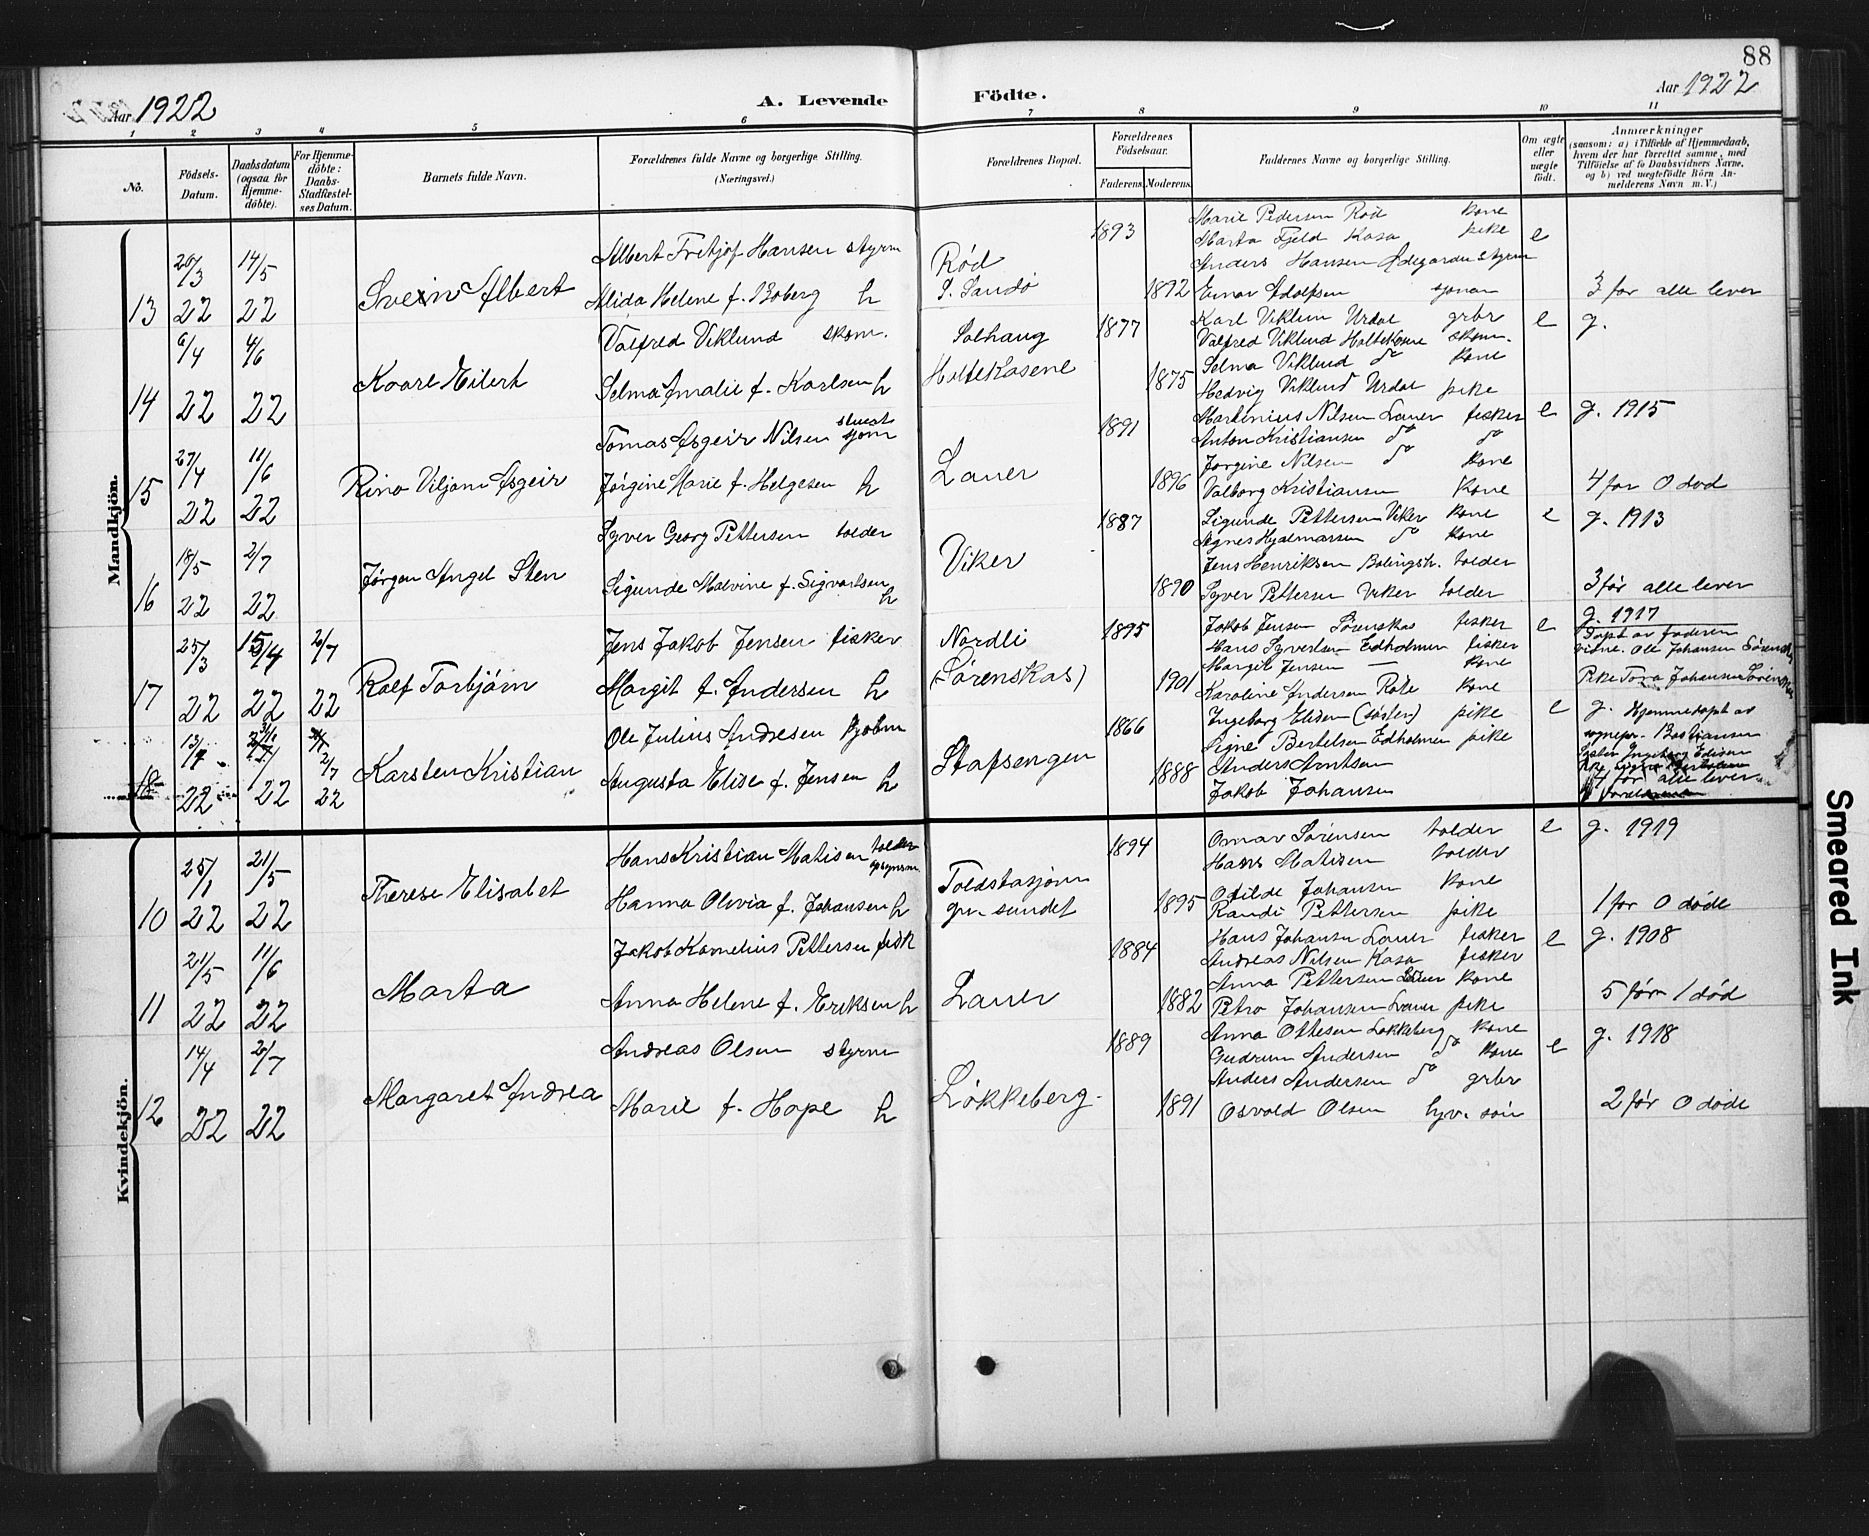 88
Aar 1922
A. Levende Födte.
Aar 1922
1 2 3 4 5 6 7 8 9 10 11
No.
Födsels-Datum.
Daabsdatum (ogsaa for Hjemme-döbte).
For Hjemme-döbte: Daabs-Stadfæstel-ses Datum.
Barnets fulde Navn.
Forældrenes fulde Navne og borgerlige Stilling.
(Næringsvei.)
Forældrenes Bopæl.
Forældrenes Födselsaar.
Faderens. Moderens.
Faddernes Navne og borgerlige Stilling.
Om ægte eller uægte födt.
Anmærkninger
(saasom: a) i Tilfælde af Hjemmedaab, hvem der har forrettet samme, med Tilföielse af to Daabsvidners Navne, og b) ved uægtefödte Börn An-melderens Navn m. V.)
Mandkjön.
13
20/3 22
14/5 22
Svein Albert
Albert Fritjof Hansen styrm
Alida Helene f. Boberg h
Rød
S. Sandö
1893
1892
Marie Pedersen Rød kone
Marta Fjeld Kasa pike
Anders Hansen Ødegarden styrm
Einar Adolfsen sjøman
e
3 før alle lever
14
6/4 22
4/6 22
Kaare Eilert
Valfred Viklund skom.
Selma Amalie f. Karlsen h
Solhaug
Holtekasene
1877
1875
Karl Viklun Urdal grbr
Valfred Viklund Holtekasene skom.
Selma Viklund do kone
Hedvig Viklund Urdal pike
e
g.
15
27/4 22
11/6 22
Rino Viljam Asgeir
Tomas Asgeir Nilsen stuert sjøm
Jørgine Marie f. Helgesen h
Lauer
1891
1896
Martinius Nilsen Lauer fisker
Anton Kristiansen do do
Jørgine Nilsen do kone
Valborg Kristiansen kone
e
g. 1915
4 før 0 død
16
18/5 22
2/7 22
Jørgen Angel Sten
Syver Georg Pettersen tolder
Sigunde Malvine f. Sigvartsen h
Viker
1887
1890
Sigunde Pettersen Viker kone
Agnes Hjalmarsen do kone
Jens Henriksen Bolingsh. tolder
Syver Pettersen Viker tolder
e
g. 1913
3 før alle lever
17
25/3 22
15/4 22
2/7 22
Rolf Torbjørn
Jens Jakob Jensen fisker
Margit f. Andersen h
Nordli
(Sørenskas)
1895
1901
Jakob Jensen Sørenskas fisker
Hans Syvertsen Edholmen fisker
Margit Jensen — kone
Karoline Andersen Rate kone
e
g. 1917
Døpt av faderen
vitne. Ole Johansen Sørensk
Pike Tora Johansen Sørensk
18
13/7 22
22
2/7 22
Karsten Kristian
Ole Julius Andresen kjøbm
Augusta Elise f. Jensen h
Stafsengen
1866
1888
Ingeborg Elisen (søster) pike
Signe Bertelsen Edholmen pike
Anders Arntsen
Jakob Johansen
e
g. Hjemmedøpt av
sognepr. Bastiansen
4 før alle lever
Kvindekjön.
10
25/1 22
21/5 22
Therese Elisabet
Hans Kristian Matisen tolder opsynsm
Hanna Olivia f. Johansen h
Toldstasjonen
gr. sundet
1894
1895
Omar Sørensen tolder
Hans Matisen tolder
Otilde Johansen kone
Randi Pettersen pike
e
g. 1919
1 før 0 døde
11
21/5 22
11/6 22
Marta
Jakob Kornelius Pettersen fisk
Anna Helene f. Eriksen h
Lauer
1884
1882
Hans Johansen Lauer fisker
Andreas Nilsen Kasa fisker
Anna Pettersen Lauer kone
Petra Johansen Lauer pike
e
g. 1908
5 før 1 død
12
14/4 22
2/7 22
Margaret Andrea
Andreas Olsen styrm
Marie f. Hope h
Løkkeberg
1889
1891
Anna Ottesen Løkkeberg kone
Gudrun Andersen do kone
Anders Andersen do grbr
Osvald Olsen hyv. søn
e
g. 1918
2 før 0 døde
Smeared Ink